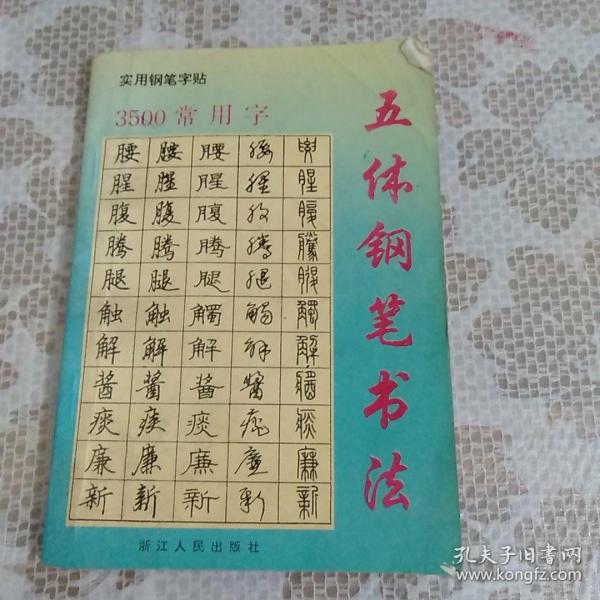 实用钢笔字贴
3500常用字
五体钢笔书法
腰 腰 腰 腰 腰
腥 腥 腥 腥 腥
腹 腹 腹 腹 腹
腾 腾 腾 腾 騰
腿 腿 腿 腿 腿
触 触 觸 觸 觸
解 解 解 解 解
酱 酱 酱 醬 醬
痰 痰 痰 痰 痰
廉 廉 廉 廉 廉
新 新 新 新 新
浙江人民出版社
孔夫子旧书网
www.kongfz.com